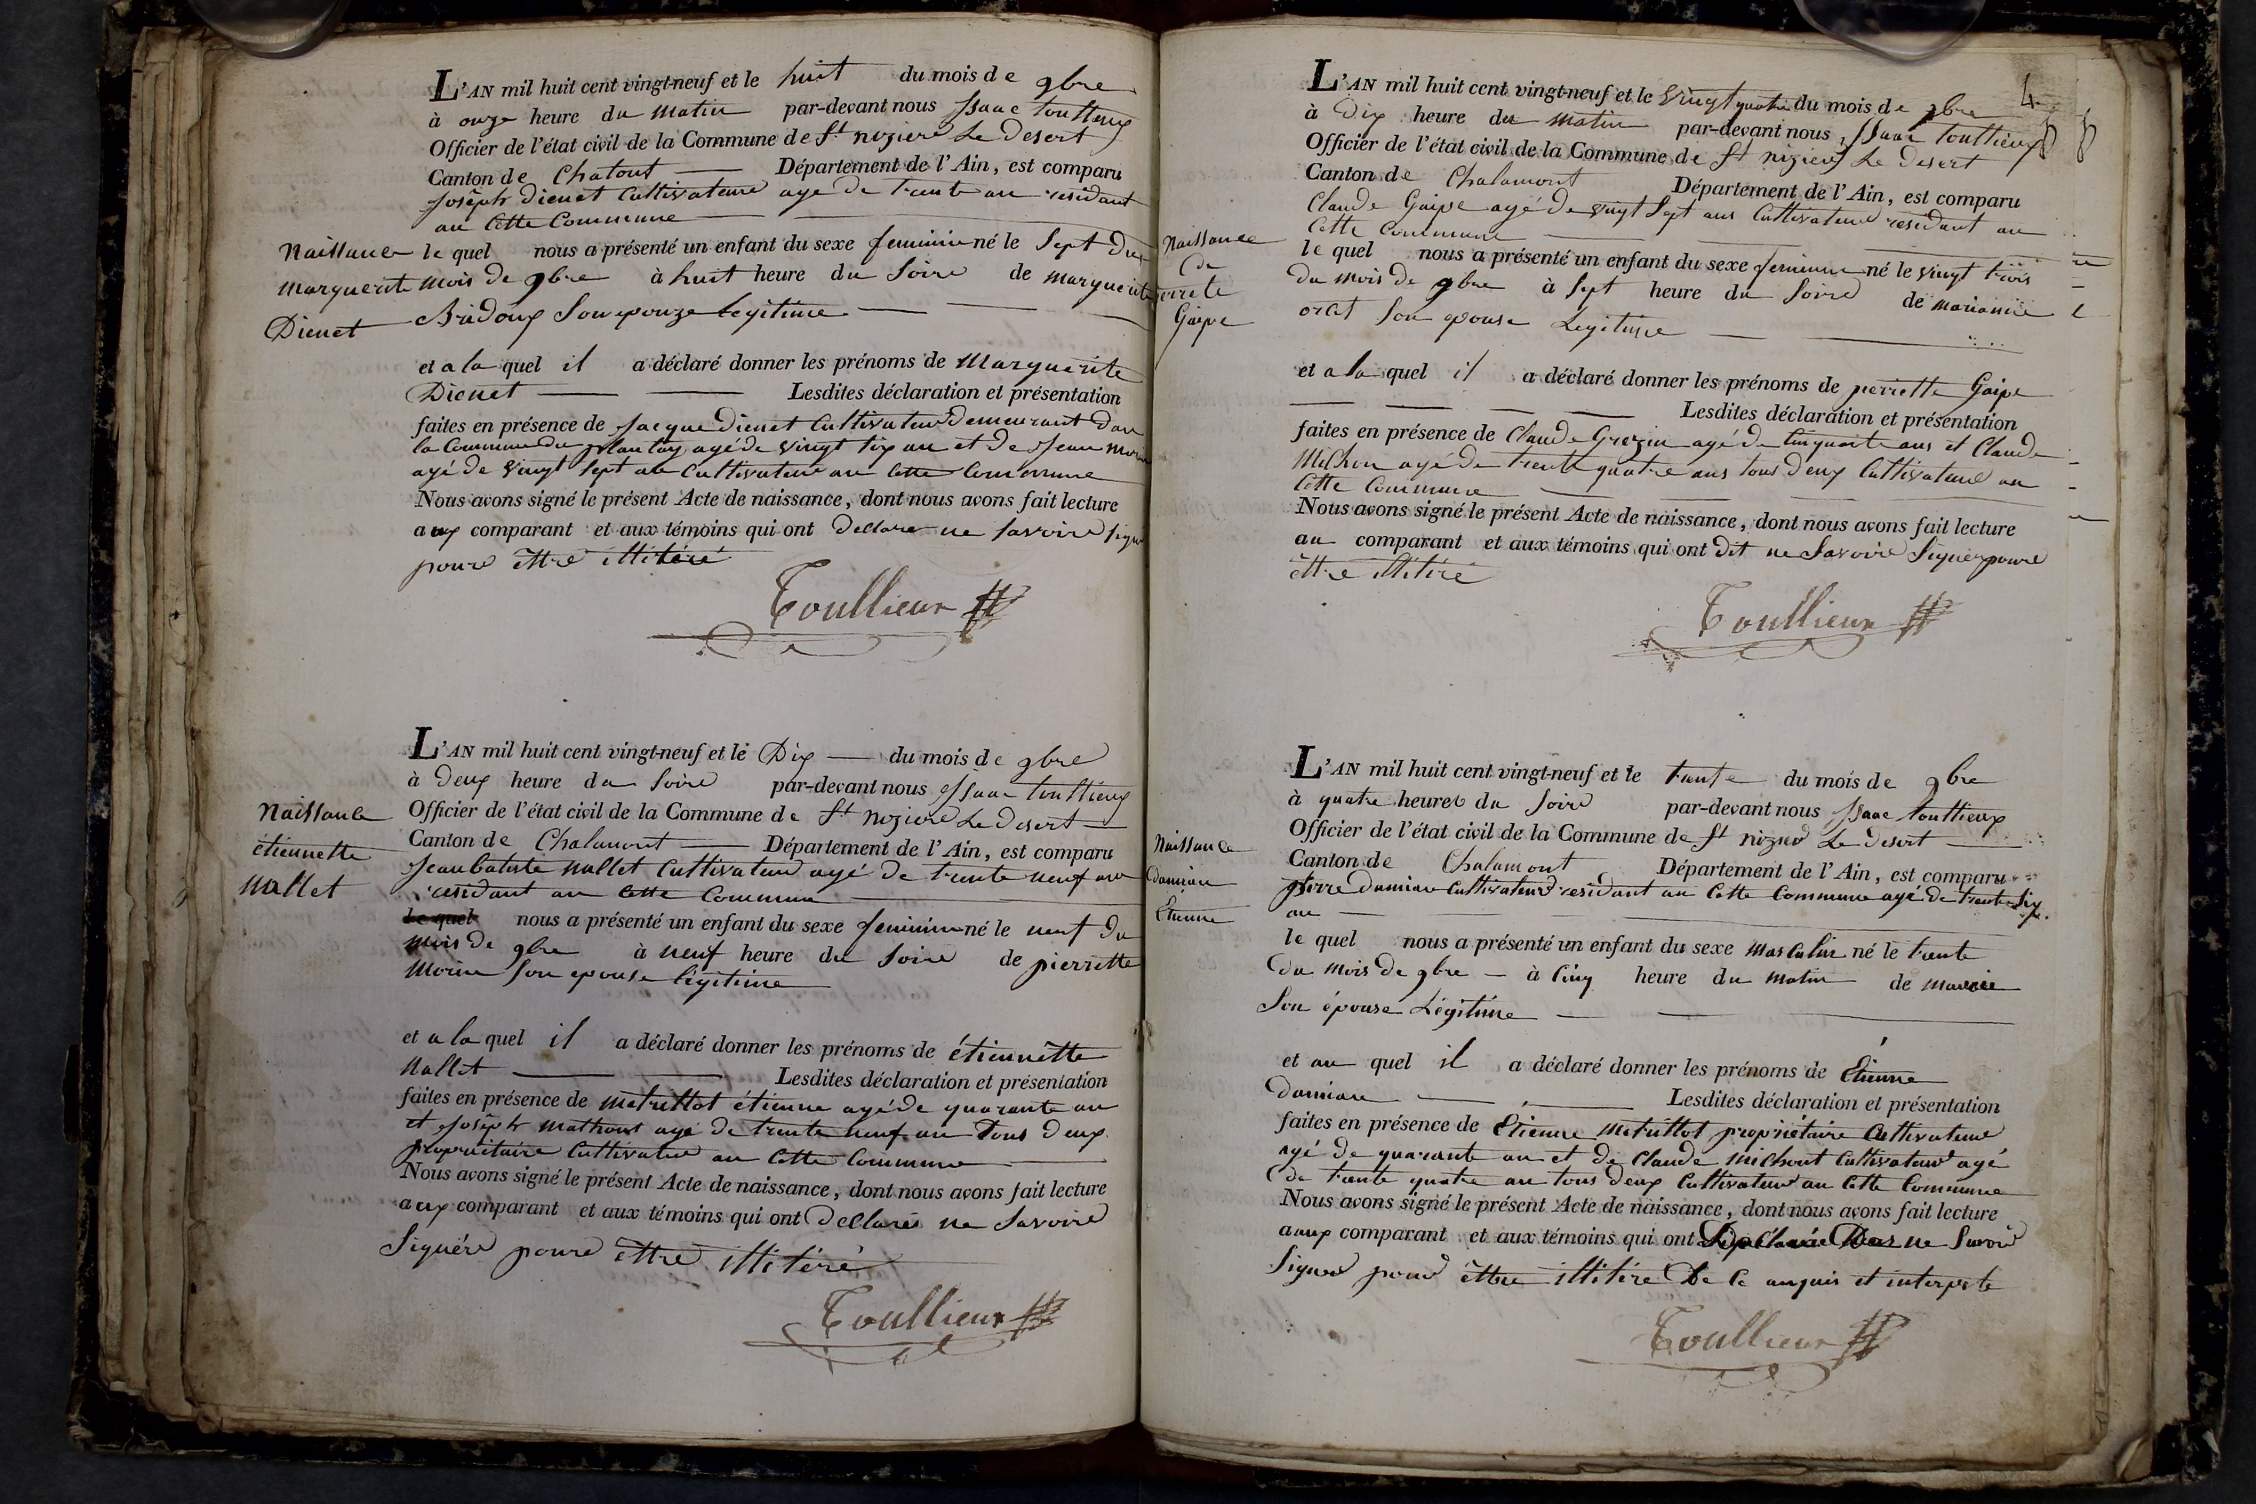 L'AN mil huit cent vingt-neuf et le huit du mois de 9bre
à onze heure du matin par-devant nous Isaac toullieux
Officier de l'état civil de la Commune de St niziere Le desert
Canton de Chatout Département de l'Ain, est comparu
Josêph dienet Cultivateure agé de trente an residant
au Cette Commune
Naissance
Marguerite
Dienet
le quel nous a présenté un enfant du sexe feminin né le Sept du
mois de 9bre à huit heure du Soire de marguerite
Bridoux Son epouze legitime
et a la quel il a déclaré donner les prénoms de Marguerite
Dienet Lesdites déclaration et présentation
faites en présence de Jacque dienet Cultivateur demeurant dan
la Commune du plantay agé de vingt six an et de Jean
agé de vingt Sept an Cultivateur au Cette Commune
Nous avons signé le présent Acte de naissance, dont nous avons fait lecture
aux comparant et aux témoins qui ont déclaré ne Savoire Signé
poure êttre illitéré
Toullieux
L'AN mil huit cent vingt-neuf et le Dix du mois de 9bre
à deux heure du Soire par-devant nous Isaac toullieux
Officier de l'état civil de la Commune de St niziere Le desert
Canton de Chalamont Département de l'Ain, est comparu
Jean batiste Mallet Cultivateur agé de trente neuf an
residant au Cette Commune
Naissance
étiennette
Mallet
le quel nous a présenté un enfant du sexe feminin né le neuf du
mois de 9bre à neuf heure du Soire de pierrette
Morin Son epouse légitime
et a la quel il a déclaré donner les prénoms de étiennette
Mallet Lesdites déclaration et présentation
faites en présence de Metrillot étienne agé de quarante an
et Josêph Mathout agé de trente neuf an Tous deux
propriétaire Cultivateur au Cette Commune
Nous avons signé le présent Acte de naissance, dont nous avons fait lecture
aux comparant et aux témoins qui ont déClarés ne Savoire
Signére poure êttre illitéré
Toullieux
4
L'AN mil huit cent vingt-neuf et le Vingt quatre du mois de 9bre
à Dix heure du matin par-devant nous, Isaac toullieux
Officier de l'état civil de la Commune de St niziere Le desert
Canton de Chalamont Département de l'Ain, est comparu
Claude Gaipe agé de vingt Sept ans Cultivateur residant au
Cette Commune
Naissance
de
Gaipe
le quel nous a présenté un enfant du sexe feminin né le vingt trois
du mois de 9bre à Sept heure du Soire de marianne
Son epouse Legitime
et a la quel il a déclaré donner les prénoms de pierrette Gaipe
Lesdites déclaration et présentation
faites en présence de Claude Grezin agé de Cinquante ans et Claude
Michon agé de trente quatre ans tous deux Cultivateur au
Cette Commune
Nous avons signé le présent Acte de naissance, dont nous avons fait lecture
au comparant et aux témoins qui ont dit ne Savoire Signer poure
êttre illitéré
Toullieux
L'AN mil huit cent vingt-neuf et le trente du mois de 9bre
à quatre heures du Soire par-devant nous Isaac toullieux
Officier de l'état civil de la Commune de St nizier Le desert
Canton de Chalamont Département de l'Ain, est comparu
pierre damian Cultivateur residant au Cette Commune agé de trente Six
an
Naissance
damian
Etienne
le quel nous a présenté un enfant du sexe masculin né le trente
du mois de 9bre à Cinq heure du matin de
Son épouse Légitime
et au quel il a déclaré donner les prénoms de Étienne
damian Lesdites déclaration et présentation
faites en présence de Étienne Metrillot propriétaire Cultivateur
agé de quarante an et de Claude Michout Cultivateur agé
de trente quatre an tous deux Cultivateur au Cette Commune
Nous avons signé le présent Acte de naissance, dont nous avons fait lecture
aux comparant et aux témoins qui ont ne Savoir
Signer pour êttre illitéré De Ce anquis et interpelé
Toullieux